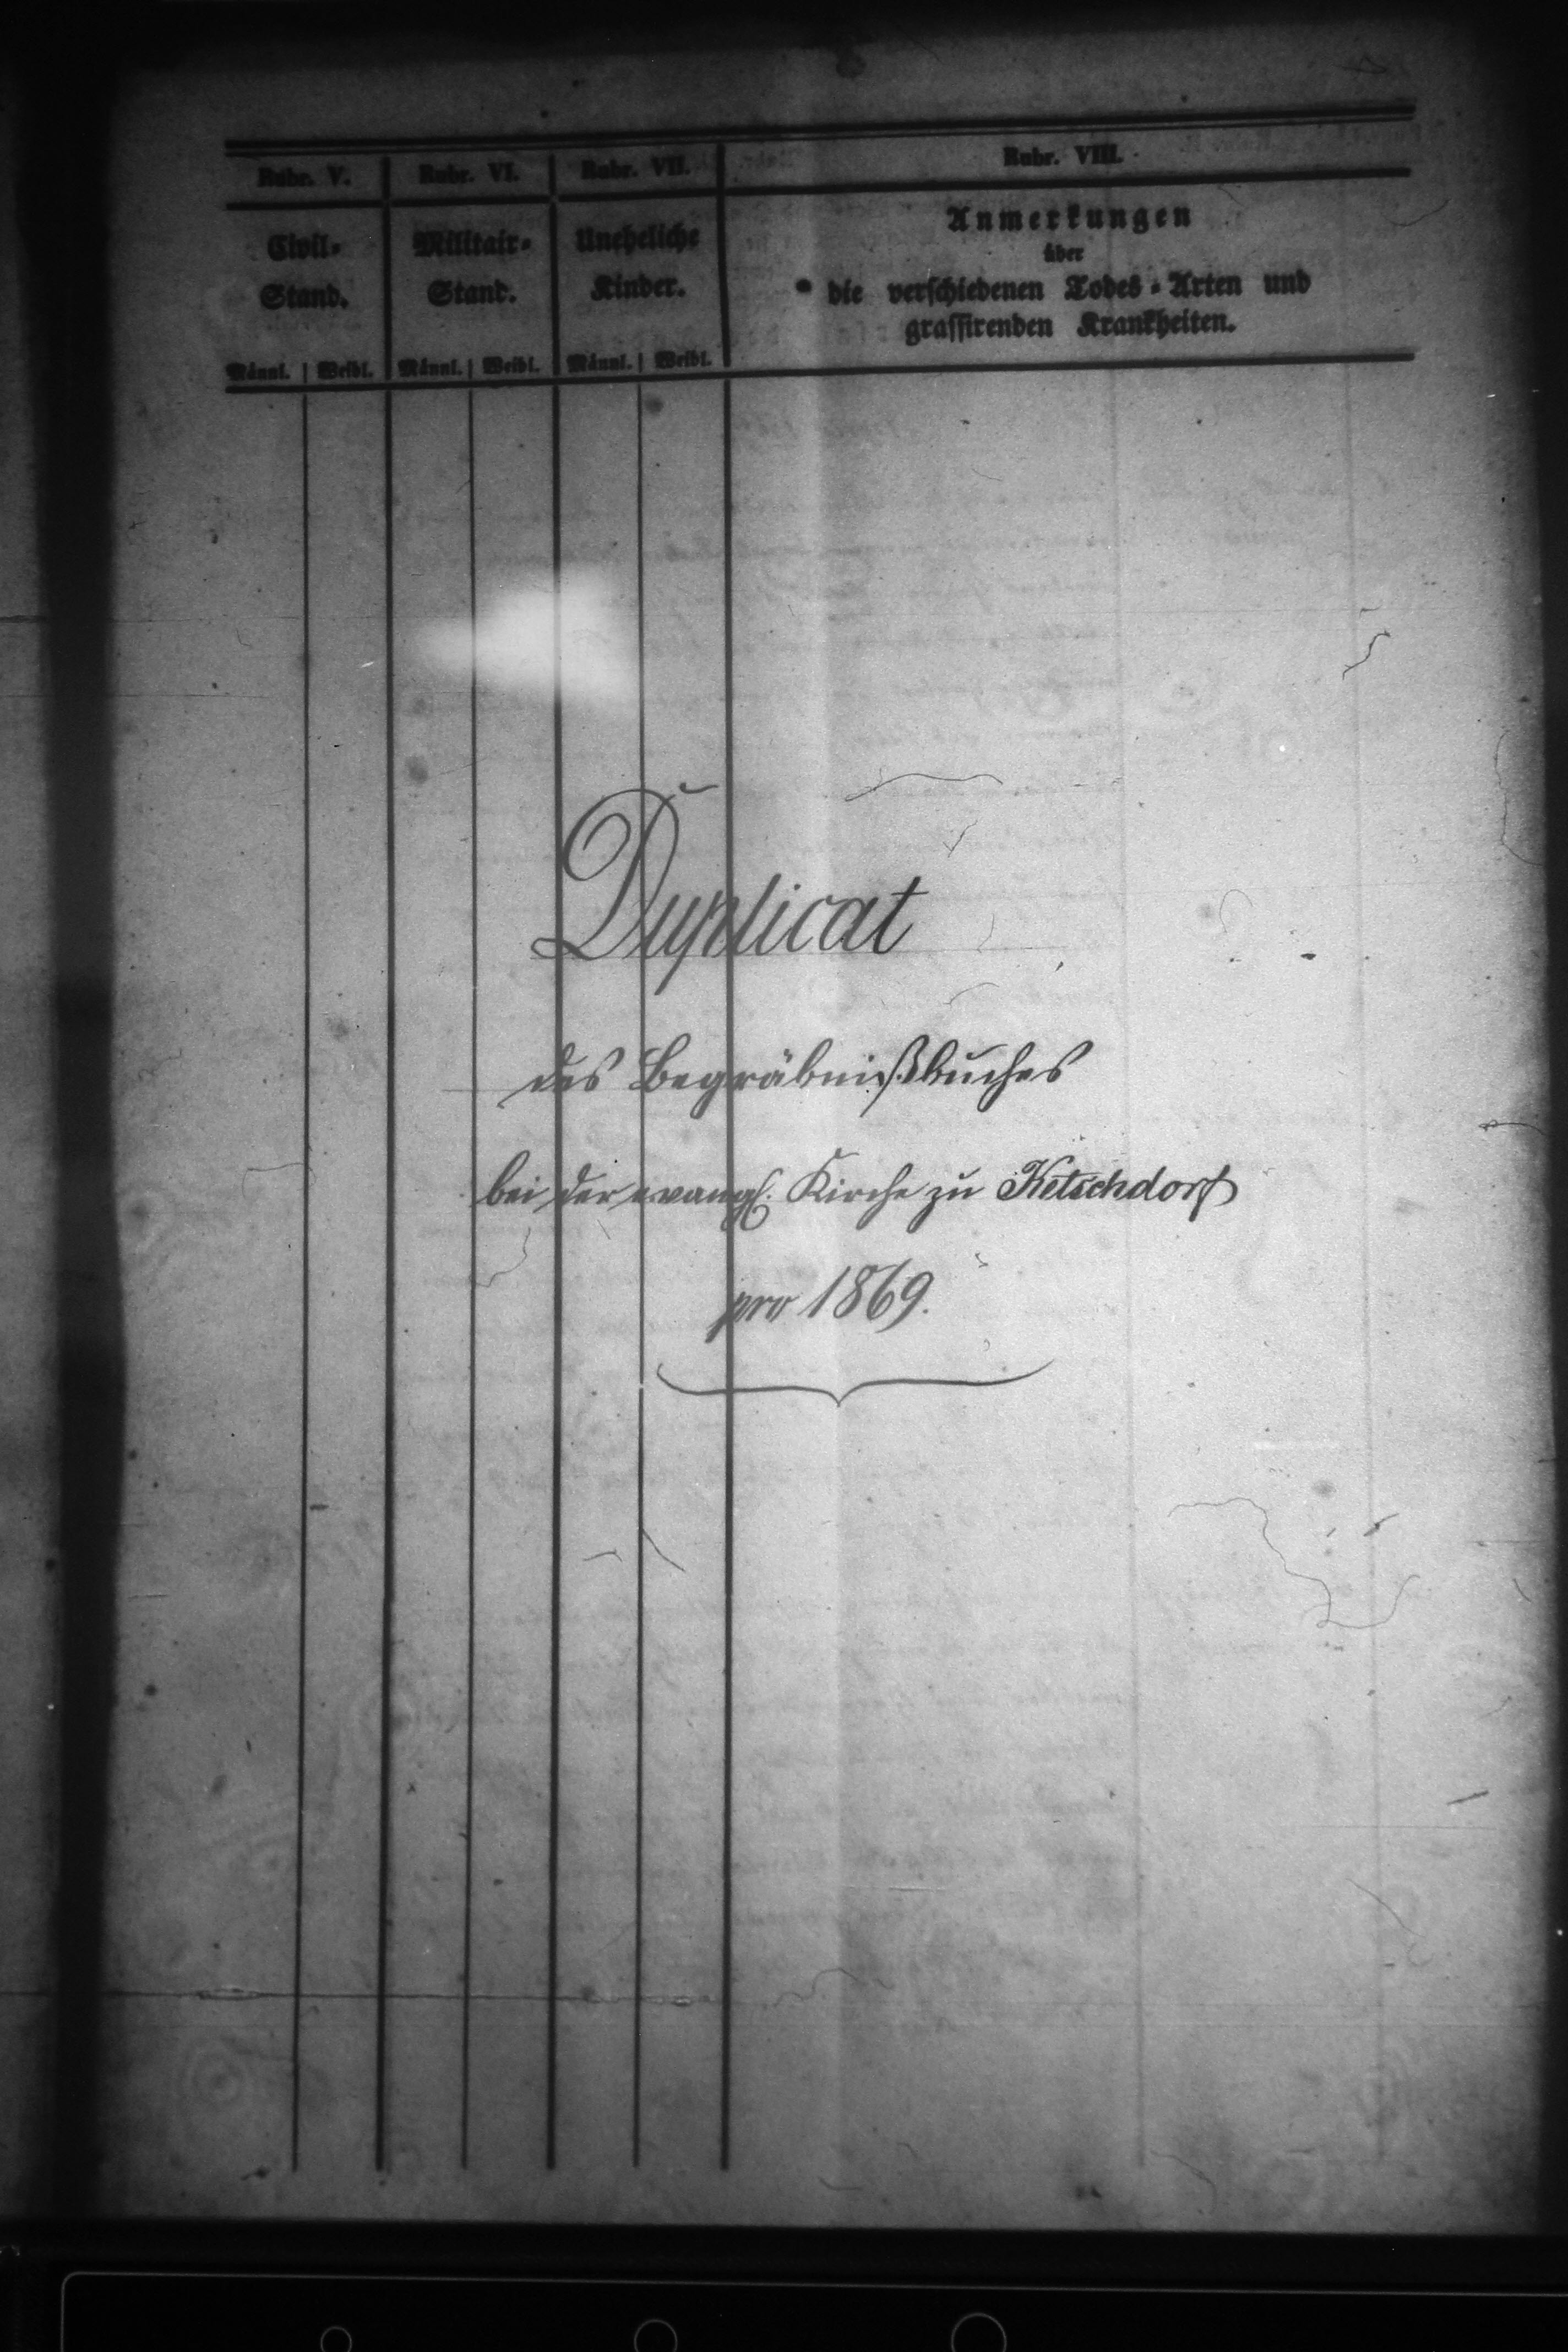 Rubr. V. Rubr. VI. Rubr. VII. Rubr. VIII.
Civil- Militair- Uneheliche Anmerkungen
Stand. Stand. Kinder. über
die verschiedenen Todes-Arten und
grassirenden Krankheiten.
Männl. Weibl. Männl. Weibl. Männl. Weibl.
Duplicat
des Begräbnißbuches
bei der evangl. Kirche zu Ketschdorf
pro 1869.